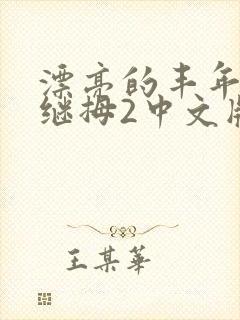 漂亮的丰年
继拇2中文版
王某华